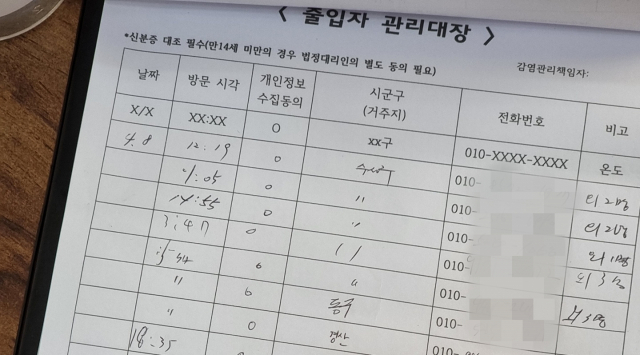 < 출입자 관리대장 >
*신분증 대조 필수(만14세 미만의 경우 법정대리인의 별도 동의 필요)
감염관리책임자:
날짜 방문 시각 개인정보 수집동의 시군구 (거주지) 전화번호 비고
X/X XX:XX O xx구 010-XXXX-XXXX 온도
4.8 12.19 0 수성구 010- 외 2명
1:05 0 〃 010- 외 2명
14:55 0 〃 010- 외 1명
3:47 0 〃 010- 외 3명
〃 010-
〃 동구 010- 외 3명
〃 0 경산 010-
18:35